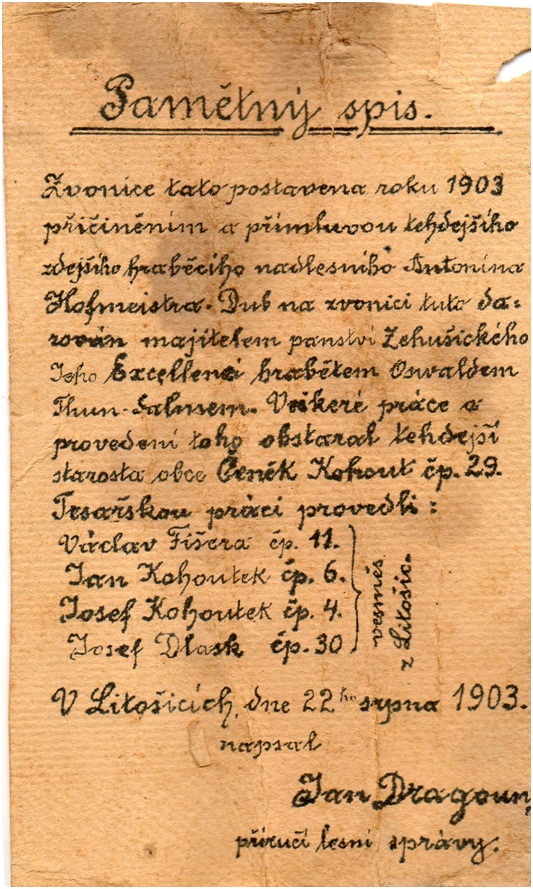 Pamětný spis.
Zvonice tato postavena roku 1903
přičiněním a přímluvou tehdejšího
zdejšího hraběcího nadlesního Antonína
Hofmeistra. Dub na zvonici tuto da-
rován majitelem panství Žehušického
Jeho Excellencí hrabětem Oswaldem
Thun-Salmem. Veškeré práce a
provedení toho obstaral tehdejší
starosta obce Čeněk Kohout čp. 29.
Tesařskou práci provedli:
Václav Fišera čp. 11.
Jan Kohoutek čp. 6.
Josef Kohoutek čp. 4.
Josef Dlask čp. 30
vesměs
z Litošic.
V Litošicích, dne 22ho srpna 1903.
napsal
Jan Dragoun,
příručí lesní správy.